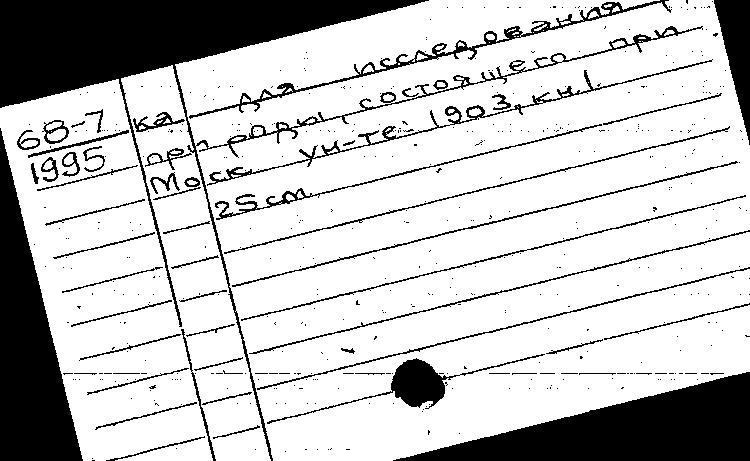 68-7
1995
ка для исследования
природы, состоящего при
Моск ун-те: 1903, кн.1.
25 cm